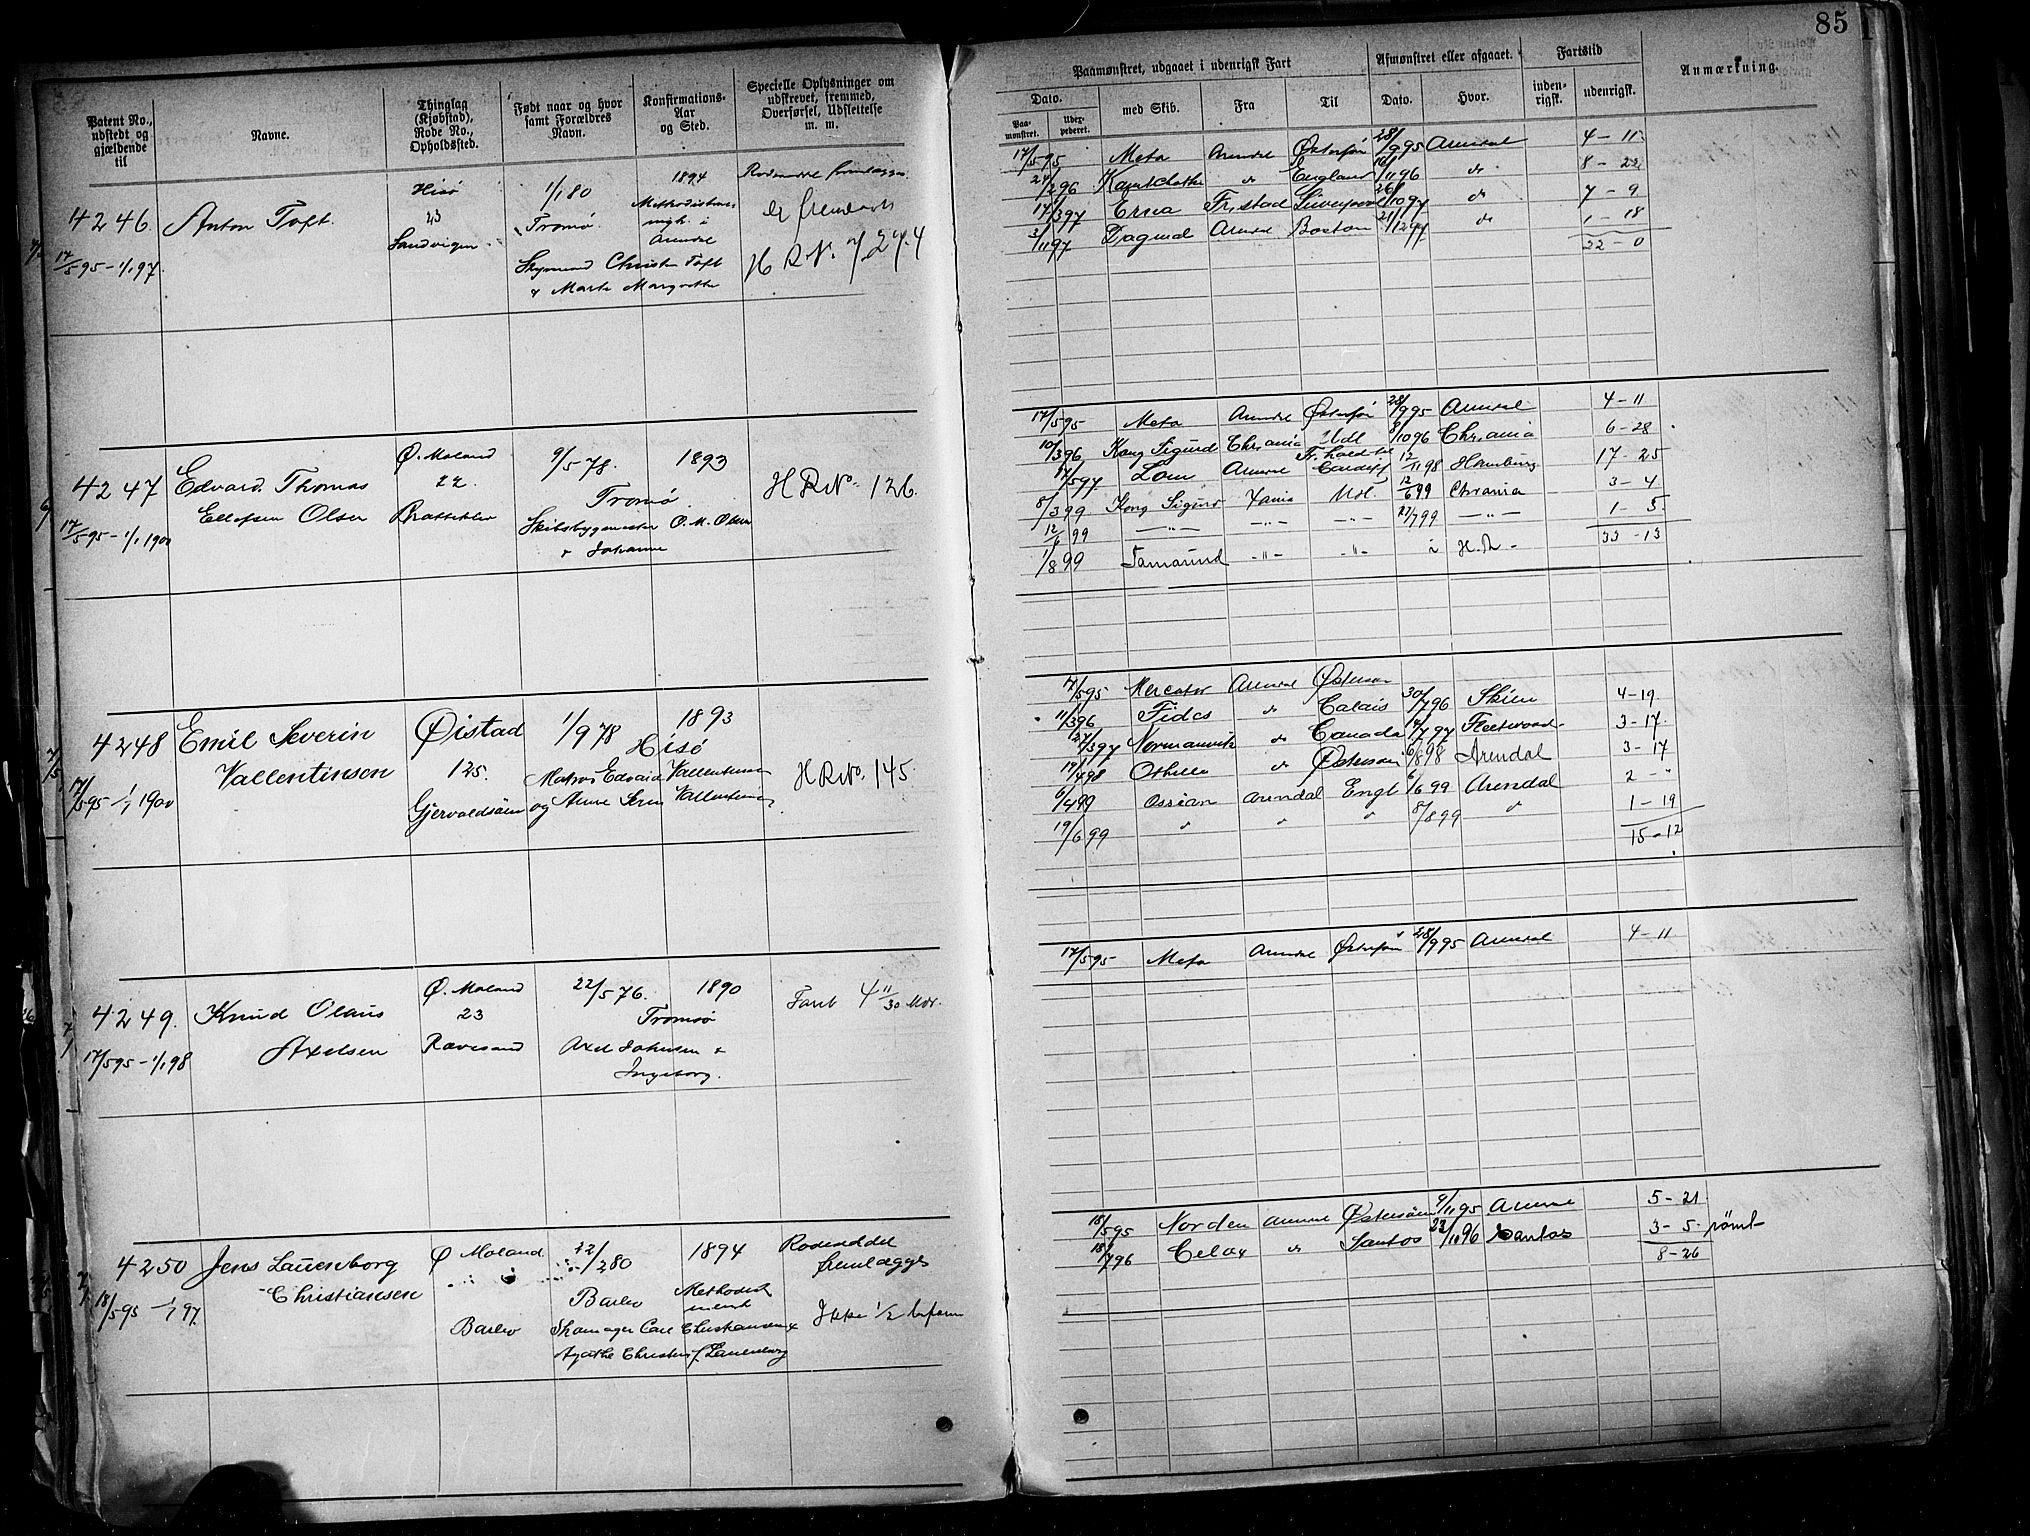 85
Patent No., udstedt og gjældende til
Navne.
Thinglag (Kjøbstad), Rode No., Opholdssted.
Født naar og hvor samt Forældres Navn.
Konfirmations-Aar og Sted.
Specielle Oplysninger om udskrevet, fremmed, Overførsel, Udslettelse m. m.
Paamønstret, udgaaet i udenrigsk Fart
Afmønstret eller afgaaet.
Fartstid
Anmærkning.
Dato.
med Skib.
Fra
Til
Dato.
Hvor.
inden-rigsk.
udenrigsk.
Paa-mønstret.
Udex-pederet.
4246. Anton Toft.
17/5 95 – 1/1 97.
Hisø
23
Sandvigen
1/1 80
Tromø.
Christen Toft
& Marte
1894
i Arendal
er fremlagt
H R N. 7274
17/5 95 Meta Arendal 28/9 95 Arendal 4 – 11
24/2 96 do England do 8 – 22
17/3 97 Erna Fr.stad Liverpool 26/10 97 do 7 – 9
3/11 97 Dagmd Arendal Boston 21/12 97 do 1 – 18
22 – 0
4247 Edvard Thomas
Ellefsen Olsen
17/5 95 – 1/1 1900
Ø. Moland
22.
Bratteklev
9/5 78.
Tromø
Skibsbygmester O. M. Olsen
& Johanne
1893
H R No. 126.
17/5 95 Meta Arendal 28/9 95 Arendal 4 – 11
10/3 96 Kong Sigurd Chr.ania Udl 8/10 96 Chr.ania 6 – 28
17/5 97 Arendal Cardiff 12/11 98 Hamburg 17 – 25
8/3 99 Kong Sigurd Xania Udl. 12/6 99 Chrania 3 – 4
12/6 99 – " – – " – – " – 27/7 99 – " – 1 – 5
1/8 99 Tamarind – " – – " – i H.R. 33 – 13
4248 Emil Severin
Vallentinsen
17/5 95 – 1/1 1900
Øistad
125.
Gjervoldsøen
1/9 78
Hisø
Matros Edvard Vallentinsen
og Anne
1893
H R No. 145.
17/5 95 Mercator Arendal Østersøn
11/3 96 Fides do Calais 30/7 96 Skien 4 – 19
27/3 97 do Canada 14/7 97 Fleetwood 3 – 17.
19/4 98 Othello do Østersøn 6/8 98 Arendal 3 – 17
6/4 99 Ossian Arendal Engl 6/6 99 Arendal 2 – "
19/6 99 " " " 8/8 99 " 1 – 19
15 – 12
4249. Knud Olaus
Axelsen
17/5 95 – 1/1 98
Ø. Moland
23
Ravesand
22/5 76.
Tromsø
Axel Johnsen &
Ingeborg.
1890
Faret 4 11/30 Mdr.
17/5 95 Meta Arendal 28/9 95 Arendal 4 – 11
4250 Jens Lauenborg
Christiansen
18/5 95 – 1/1 97.
Ø Moland
Barbo
/2 80
Barbo
Carl Christiansen &
Agathe Christens f. Lauenborg
1894
Methodist
Rodeseddel
fremlægges
Ikke 1/2 befaren
18/5 95 Norden Arendal Østersøen 9/11 95 Arendal 5 – 21
18/7 96 do Santos 23/10 96 Santos 3 – 5 rømt
8 – 26